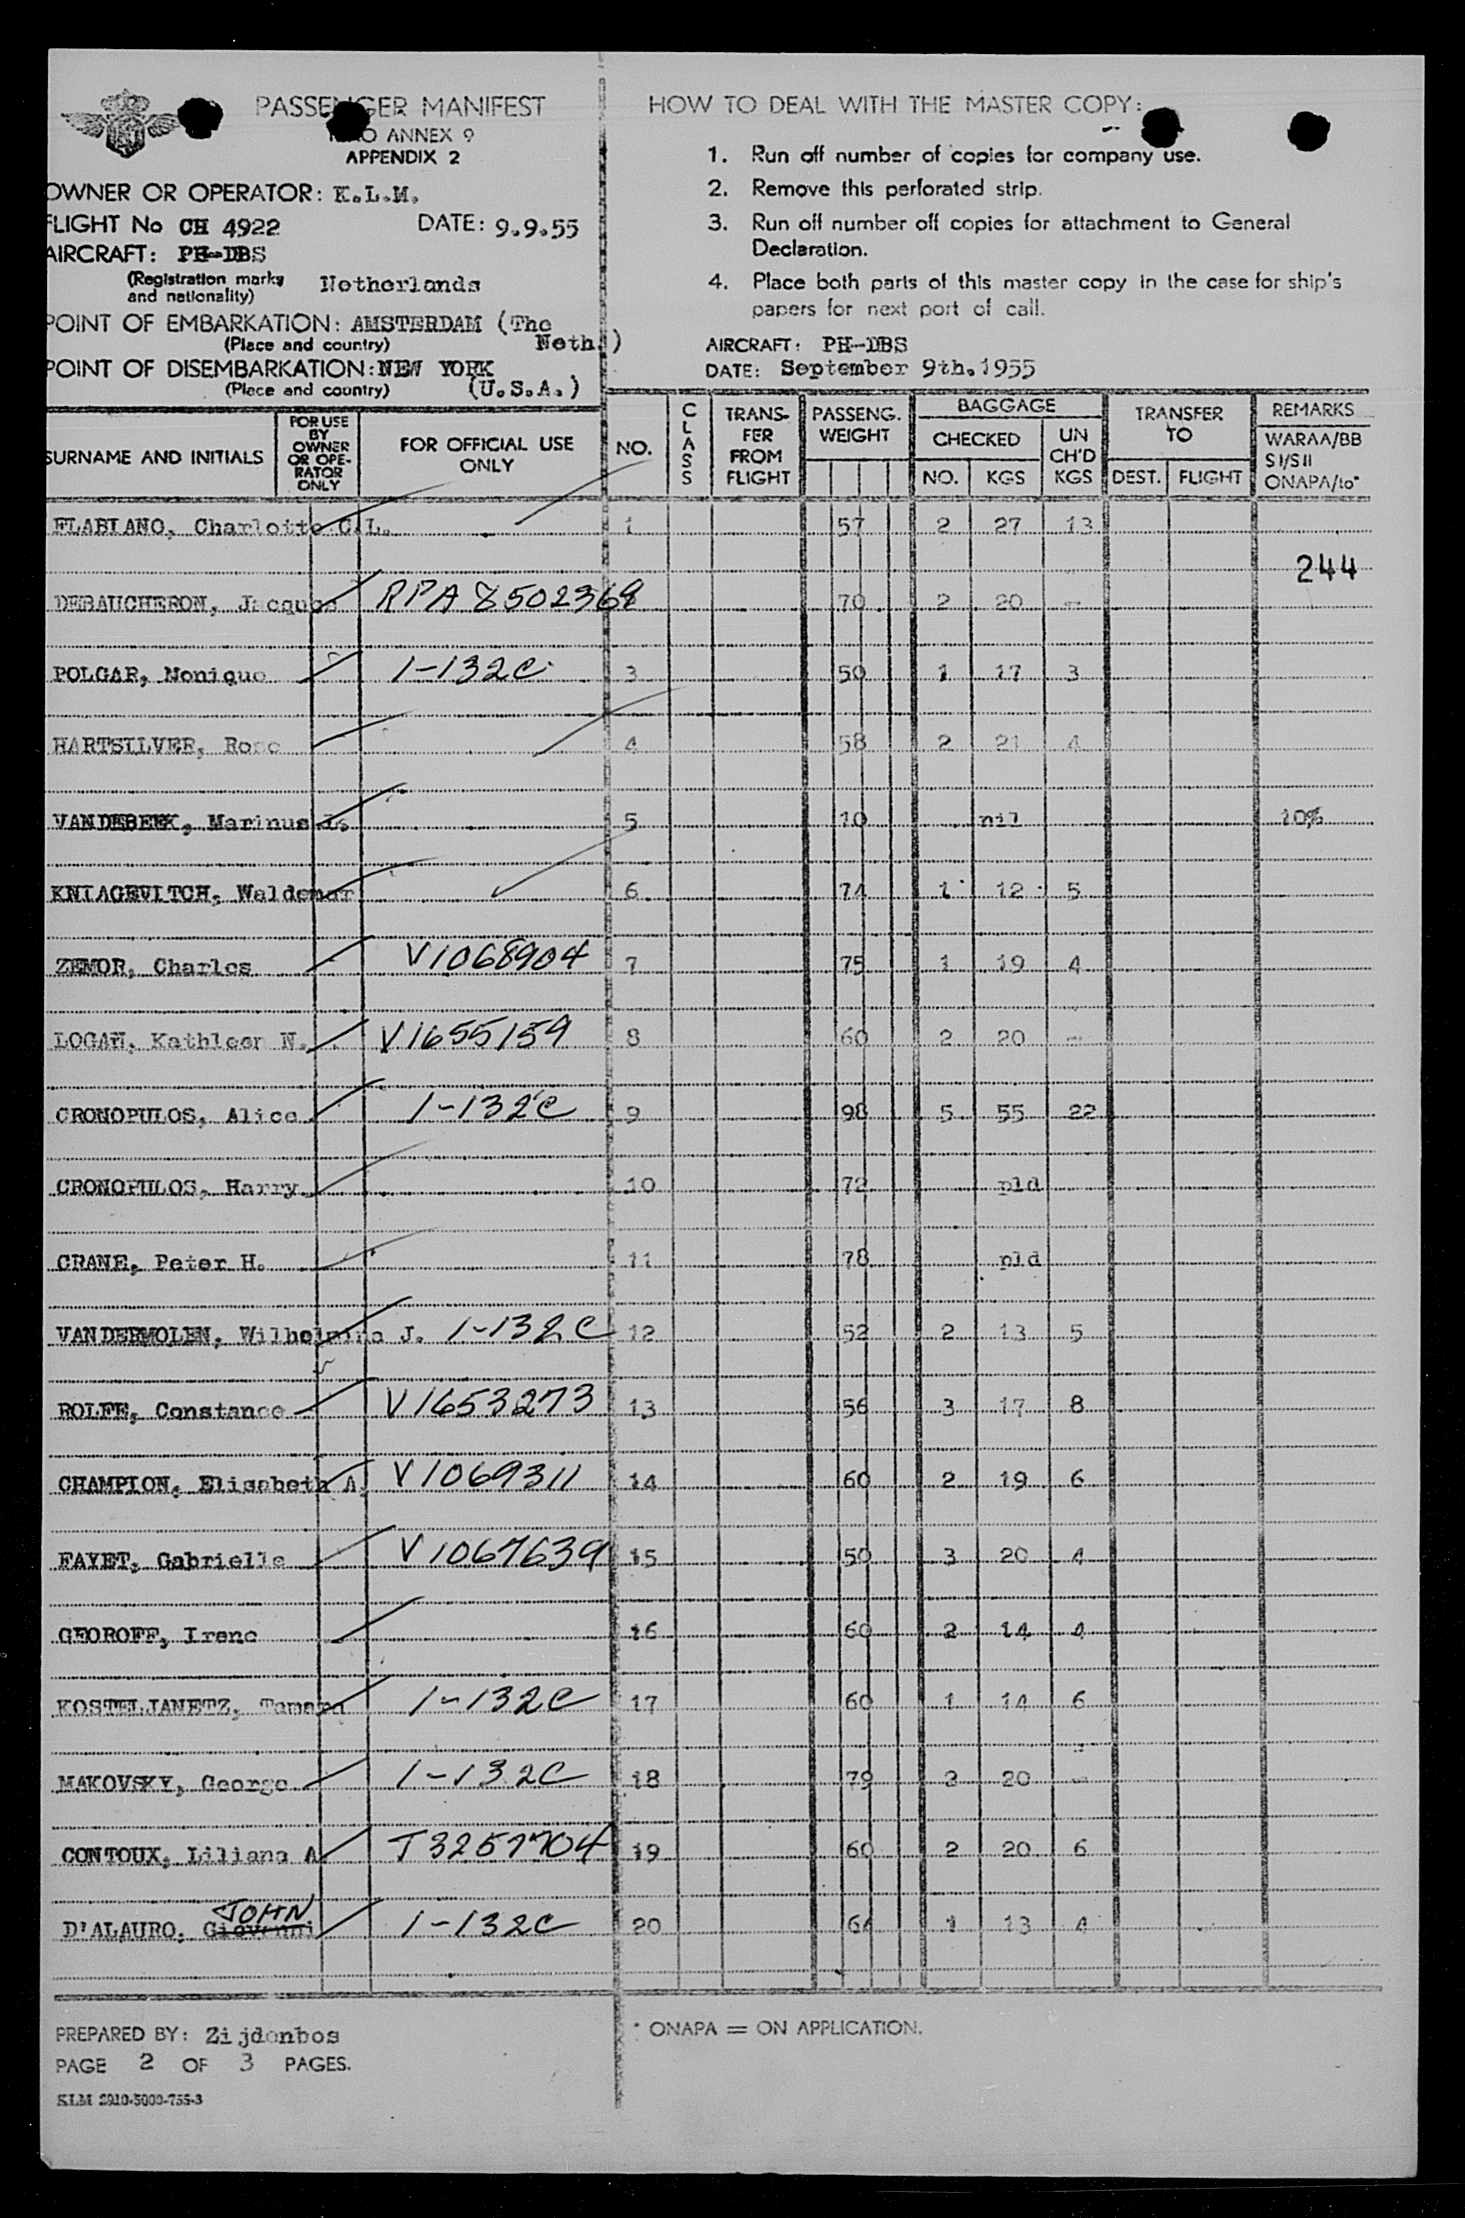 PASSENGER MANIFEST
ANNEX 9
APPENDIX 2
OWNER OR OPERATOR: K.L.M.
FLIGHT No CH 4922 DATE: 9.9.55
AIRCRAFT: PH-DBS
(Registration marks and nationality) Netherlands
POINT OF EMBARKATION: AMSTERDAM (The Neth.)
(Place and country)
POINT OF DISEMBARKATION: NEW YORK (U.S.A.)
(Place and country)
HOW TO DEAL WITH THE MASTER COPY:
1. Run off number of copies for company use.
2. Remove this perforated strip.
3. Run off number off copies for attachment to General
Declaration.
4. Place both parts of this master copy in the case for ship's
papers for next port of call.
AIRCRAFT: PH-DBS
DATE: September 9th.1955
SURNAME AND INITIALS
FOR USE BY OWNER OR OPE-RATOR ONLY
FOR OFFICIAL USE ONLY
NO.
CLASS
TRANS-FER FROM FLIGHT
PASSENG. WEIGHT
BAGGAGE
CHECKED NO. KGS
UN CH'D KGS
TRANSFER TO
DEST. FLIGHT
REMARKS
WARAA/BB
SI/SII
ONAPA/to*
FLABIANO, Charlotte C.L. 1 57 2 27 13
244
DEBAUCHERON, Jacques RPA 8502369 70 2 20 -
POLGAR, Monique 1-132C 3 50 1 17 3
HARTSILVER, Rose 4 58 2 21 4
VANDEBEEK, Marinus J. 5 10 nil 10%
KNIAGEVITCH, Waldemar 6 74 1 12 5
ZEMOR, Charles V1068904 7 75 1 19 4
LOGAN, Kathleen N. V1655159 8 60 2 20 -
CRONOPULOS, Alice 1-132C 9 98 5 55 22
CRONOPULOS, Harry 10 72 pld
CRANE, Peter H. 11 78 pld
VANDERMOLEN, Wilhelmina J. 1-132C 12 52 2 13 5
ROLFE, Constance V1653273 13 56 3 17 8
CHAMPION, Elisabeth A. V1069311 14 60 2 19 6
FAYET, Gabrielle V1067639 15 50 3 20 4
GEOROFF, Irene 16 60 2 14 4
KOSTELJANETZ, Tamara 1-132C 17 60 1 14 6
MAKOVSKY, George 1-132C 18 79 3 20 -
CONTOUX, Liliana A. T3257704 19 60 2 20 6
JOHN
D'ALAURO, Giovanni 1-132C 20 64 1 13 4
PREPARED BY: Zijdenbos
PAGE 2 OF 3 PAGES.
KLM 2910-5000-755-3
* ONAPA = ON APPLICATION.